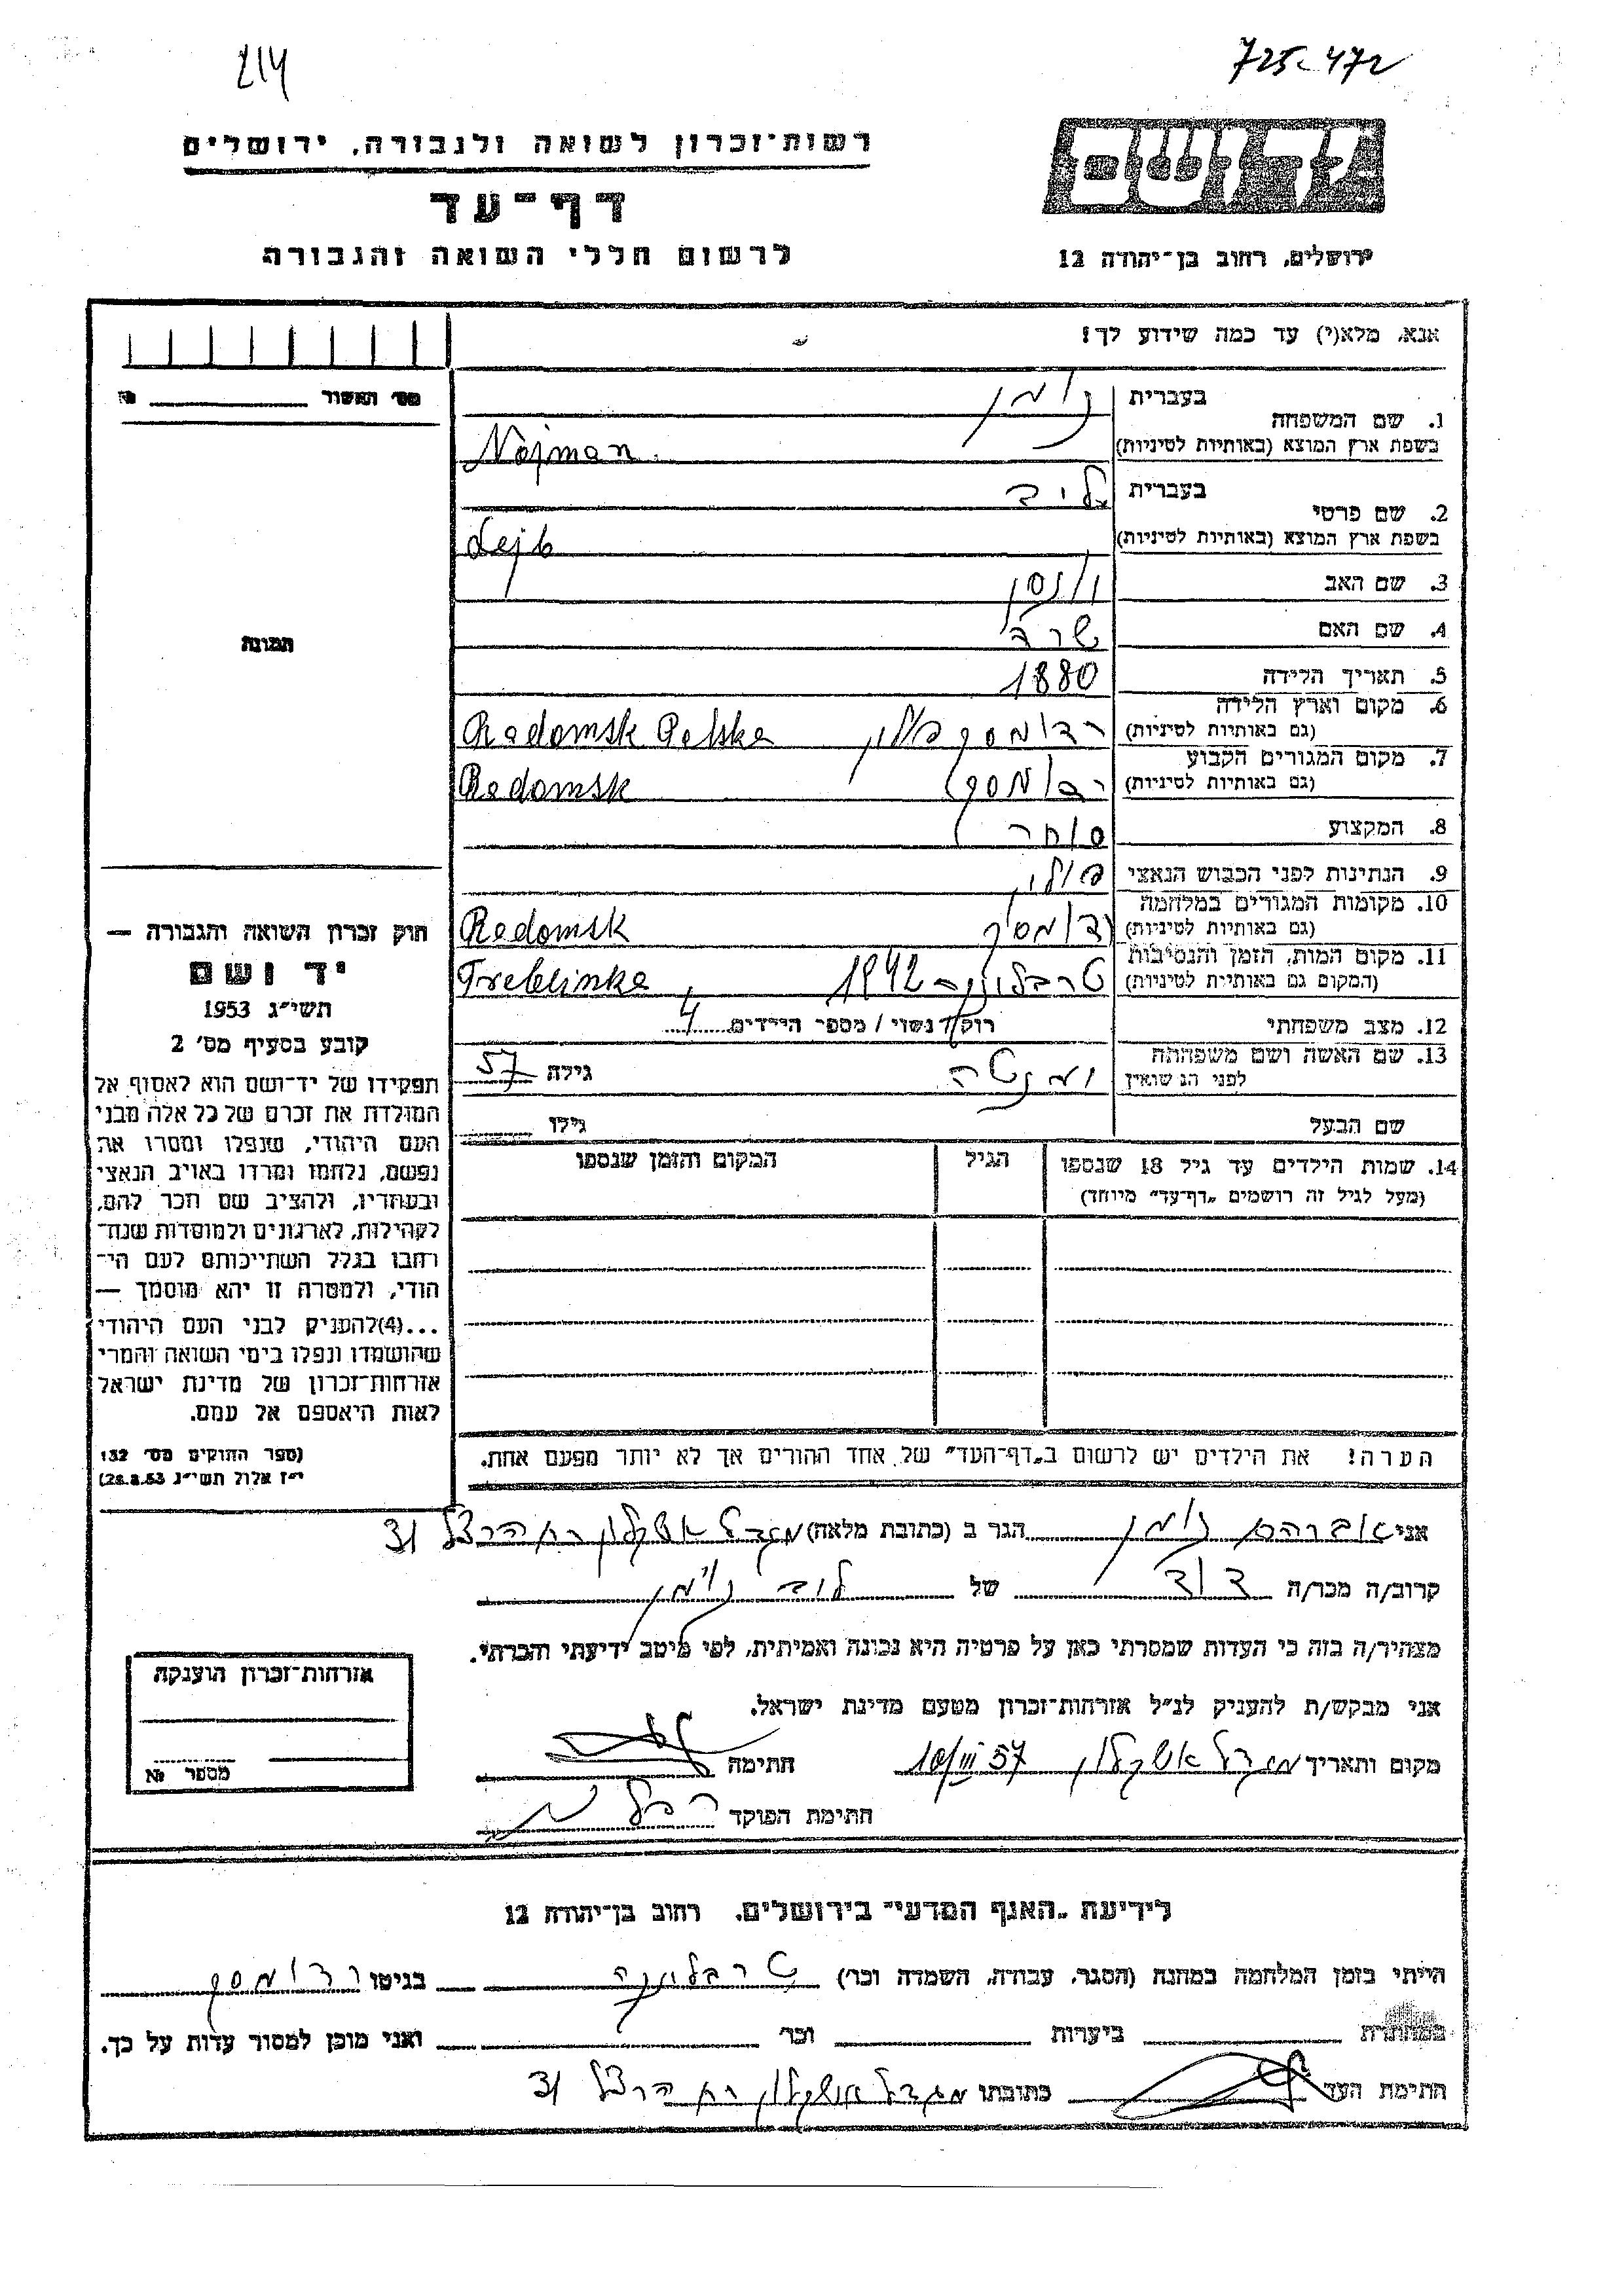 214
725-472
רשות־זכרון לשואה ולגבורה, ירושלים
דף־עד
לרשום חללי השואה והגבורה
ירושלים, רחוב בן־יהודה 12
אנא, מלא(י) עד כמה שידוע לך!
מס׳ האשור № 
1. שם המשפחה בעברית
בשפת ארץ המוצא (באותיות לטיניות) Najman
2. שם פרטי בעברית ליב
בשפת ארץ המוצא (באותיות לטיניות) Lejb
3. שם האב
4. שם האם שרה
5. תאריך הלידה 1880
6. מקום וארץ הלידה (גם באותיות לטיניות) רדומסק פולין Radomsk Polska
7. מקום המגורים הקבוע (גם באותיות לטיניות) רדומסק Radomsk
8. המקצוע סוחר
9. הנתינות לפני הכבוש הנאצי פולין
10. מקומות המגורים במלחמה (גם באותיות לטיניות) רדומסק Radomsk
11. מקום המות, הזמן והנסיבות (המקום גם באותיות לטיניות) טרבלינקה 1942 Treblinka
12. מצב משפחתי רוק/ה נשוי / מספר הילדים 4
13. שם האשה ושם משפחתה לפני הנשואין גילה 57
שם הבעל גילו
14. שמות הילדים עד גיל 18 שנספו הגיל המקום והזמן שנספו
(מעל לגיל זה רושמים „דף־עד״ מיוחד)
הערה! את הילדים יש לרשום ב„דף־העד״ של אחד ההורים אך לא יותר מפעם אחת.
תמונה
חוק זכרון השואה והגבורה —
יד ושם
תשי״ג 1953
קובע בסעיף מס׳ 2
תפקידו של יד־ושם הוא לאסוף אל
המולדת את זכרם של כל אלה מבני
העם היהודי, שנפלו ומסרו את
נפשם, נלחמו ומרדו באויב הנאצי
ובעוזריו, ולהציב שם וזכר להם,
לקהילות, לארגונים ולמוסדות שנח־
רבו בגלל השתייכותם לעם הי־
הודי, ולמטרה זו יהא מוסמך —
...(4)להעניק לבני העם היהודי
שהושמדו ונפלו בימי השואה והמרי
אזרחות־זכרון של מדינת ישראל
לאות היאספם אל עמם.
(ספר החוקים מס׳ 132
י״ז אלול תשי״ג 28.8.53)
אני אברהם נימן הגר ב (כתובת מלאה) מגדל אשקלון רח הרצל 31
קרוב/ה מכר/ה דוד של ליב נימן
מצהיר/ה בזה כי העדות שמסרתי כאן על פרטיה היא נכונה ואמיתית, לפי מיטב ידיעתי והכרתי.
אני מבקש/ת להעניק לנ״ל אזרחות־זכרון מטעם מדינת ישראל.
מקום ותאריך מגדל אשקלון 10/III 57 חתימה
חתימת הפוקד
אזרחות־זכרון הוענקה
מספר №
לידיעת „האגף המדעי״ בירושלים. רחוב בן־יהודה 12
הייתי בזמן המלחמה במחנה (הסגר, עבודה, השמדה וכו׳) טרבלינקה בגיטו רדומסק
במחתרת ביערות וכו׳ ואני מוכן למסור עדות על כך.
חתימת העד כתובתו מגדל אשקלון רח הרצל 31